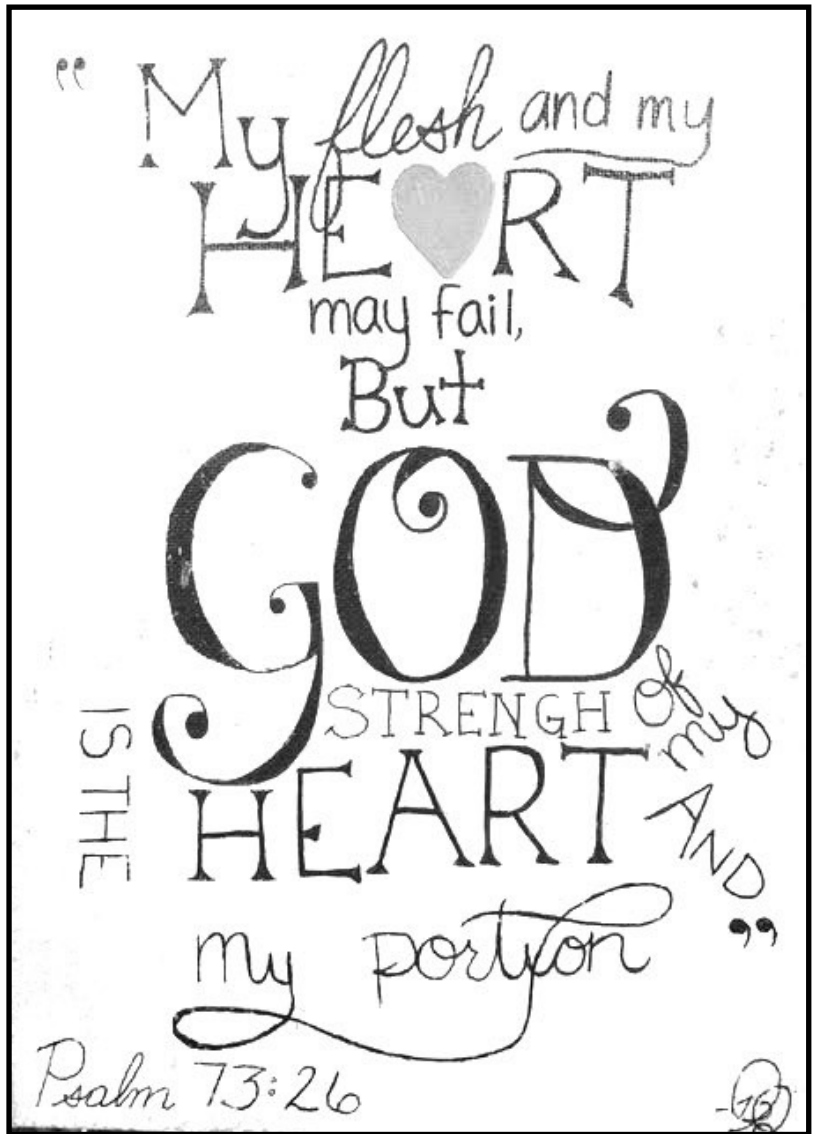 " My flesh and my
HE RT
may fail,
But
GOD
IS THE
STRENGH of my
HEART AND
my portion "
Psalm 73:26